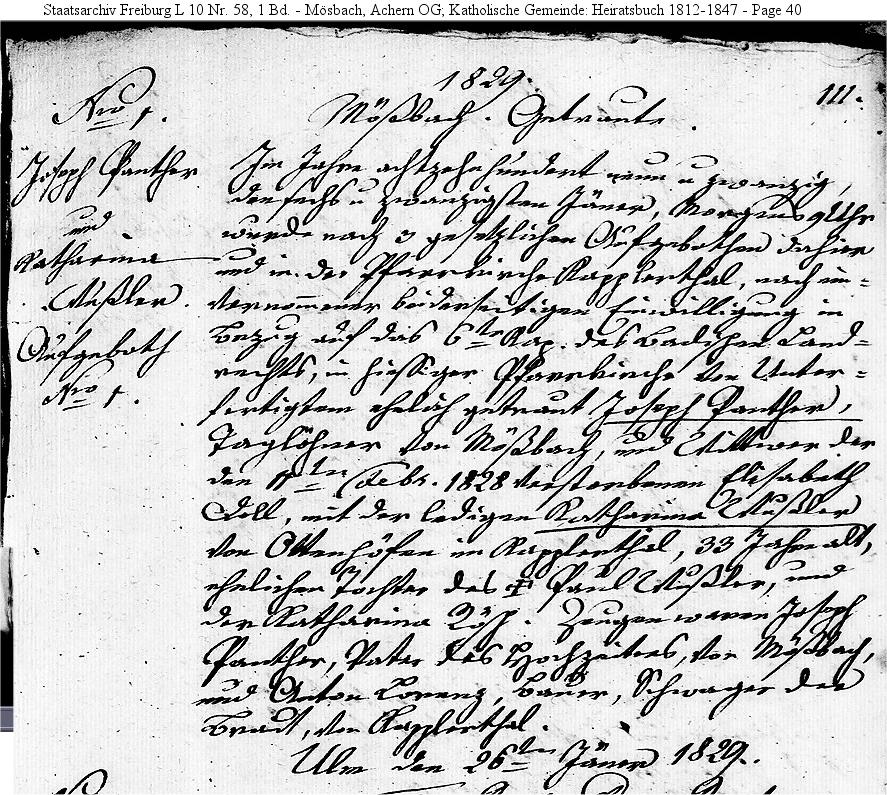 Staatsarchiv Freiburg L 10 Nr. 58, 1 Bd. - Mösbach, Achern OG; Katholische Gemeinde: Heiratsbuch 1812-1847 - Page 40
1829.
111.
Mößbach. Getraute.
Nro 1.
Joseph Panther
und
Katharina
Mußler.
Aufgeboth
Nro 1.
Im Jahre achtzehnhundert neun u zwanzig,
den sechs u zwanzigsten Jäner, Morgens 9 Uhr
wurde nach 3 gesetzlichen Aufgebothen dahier
und in der Pfarrkirche Kapplerthal, nach in=
vernommener beiderseitigen Einwilligung in
Bezug auf das 6te Kap. des Badischen Land=
rechts, in hiesiger Pfarrkirche von Unter=
fertigtem ehelich getraut Joseph Panther,
Taglöhner von Mößbach, und Wittwer der
den 17ten Febr. 1828 verstorbenen Elisabeth
Doll, mit der ledigen Katharina Mußler
von Ottenhöfen im Kapplerthal, 33 Jahre alt,
ehelichen Tochter des † Paul Mußler, und
der Katharina Zeugen waren Joseph
Panther, Vater des Hochzeiters, von Mößbach,
und Anton Lorenz, Bauer, Schwager der
Braut, von Kapplerthal.
Ulm den 26ten Jäner 1829.